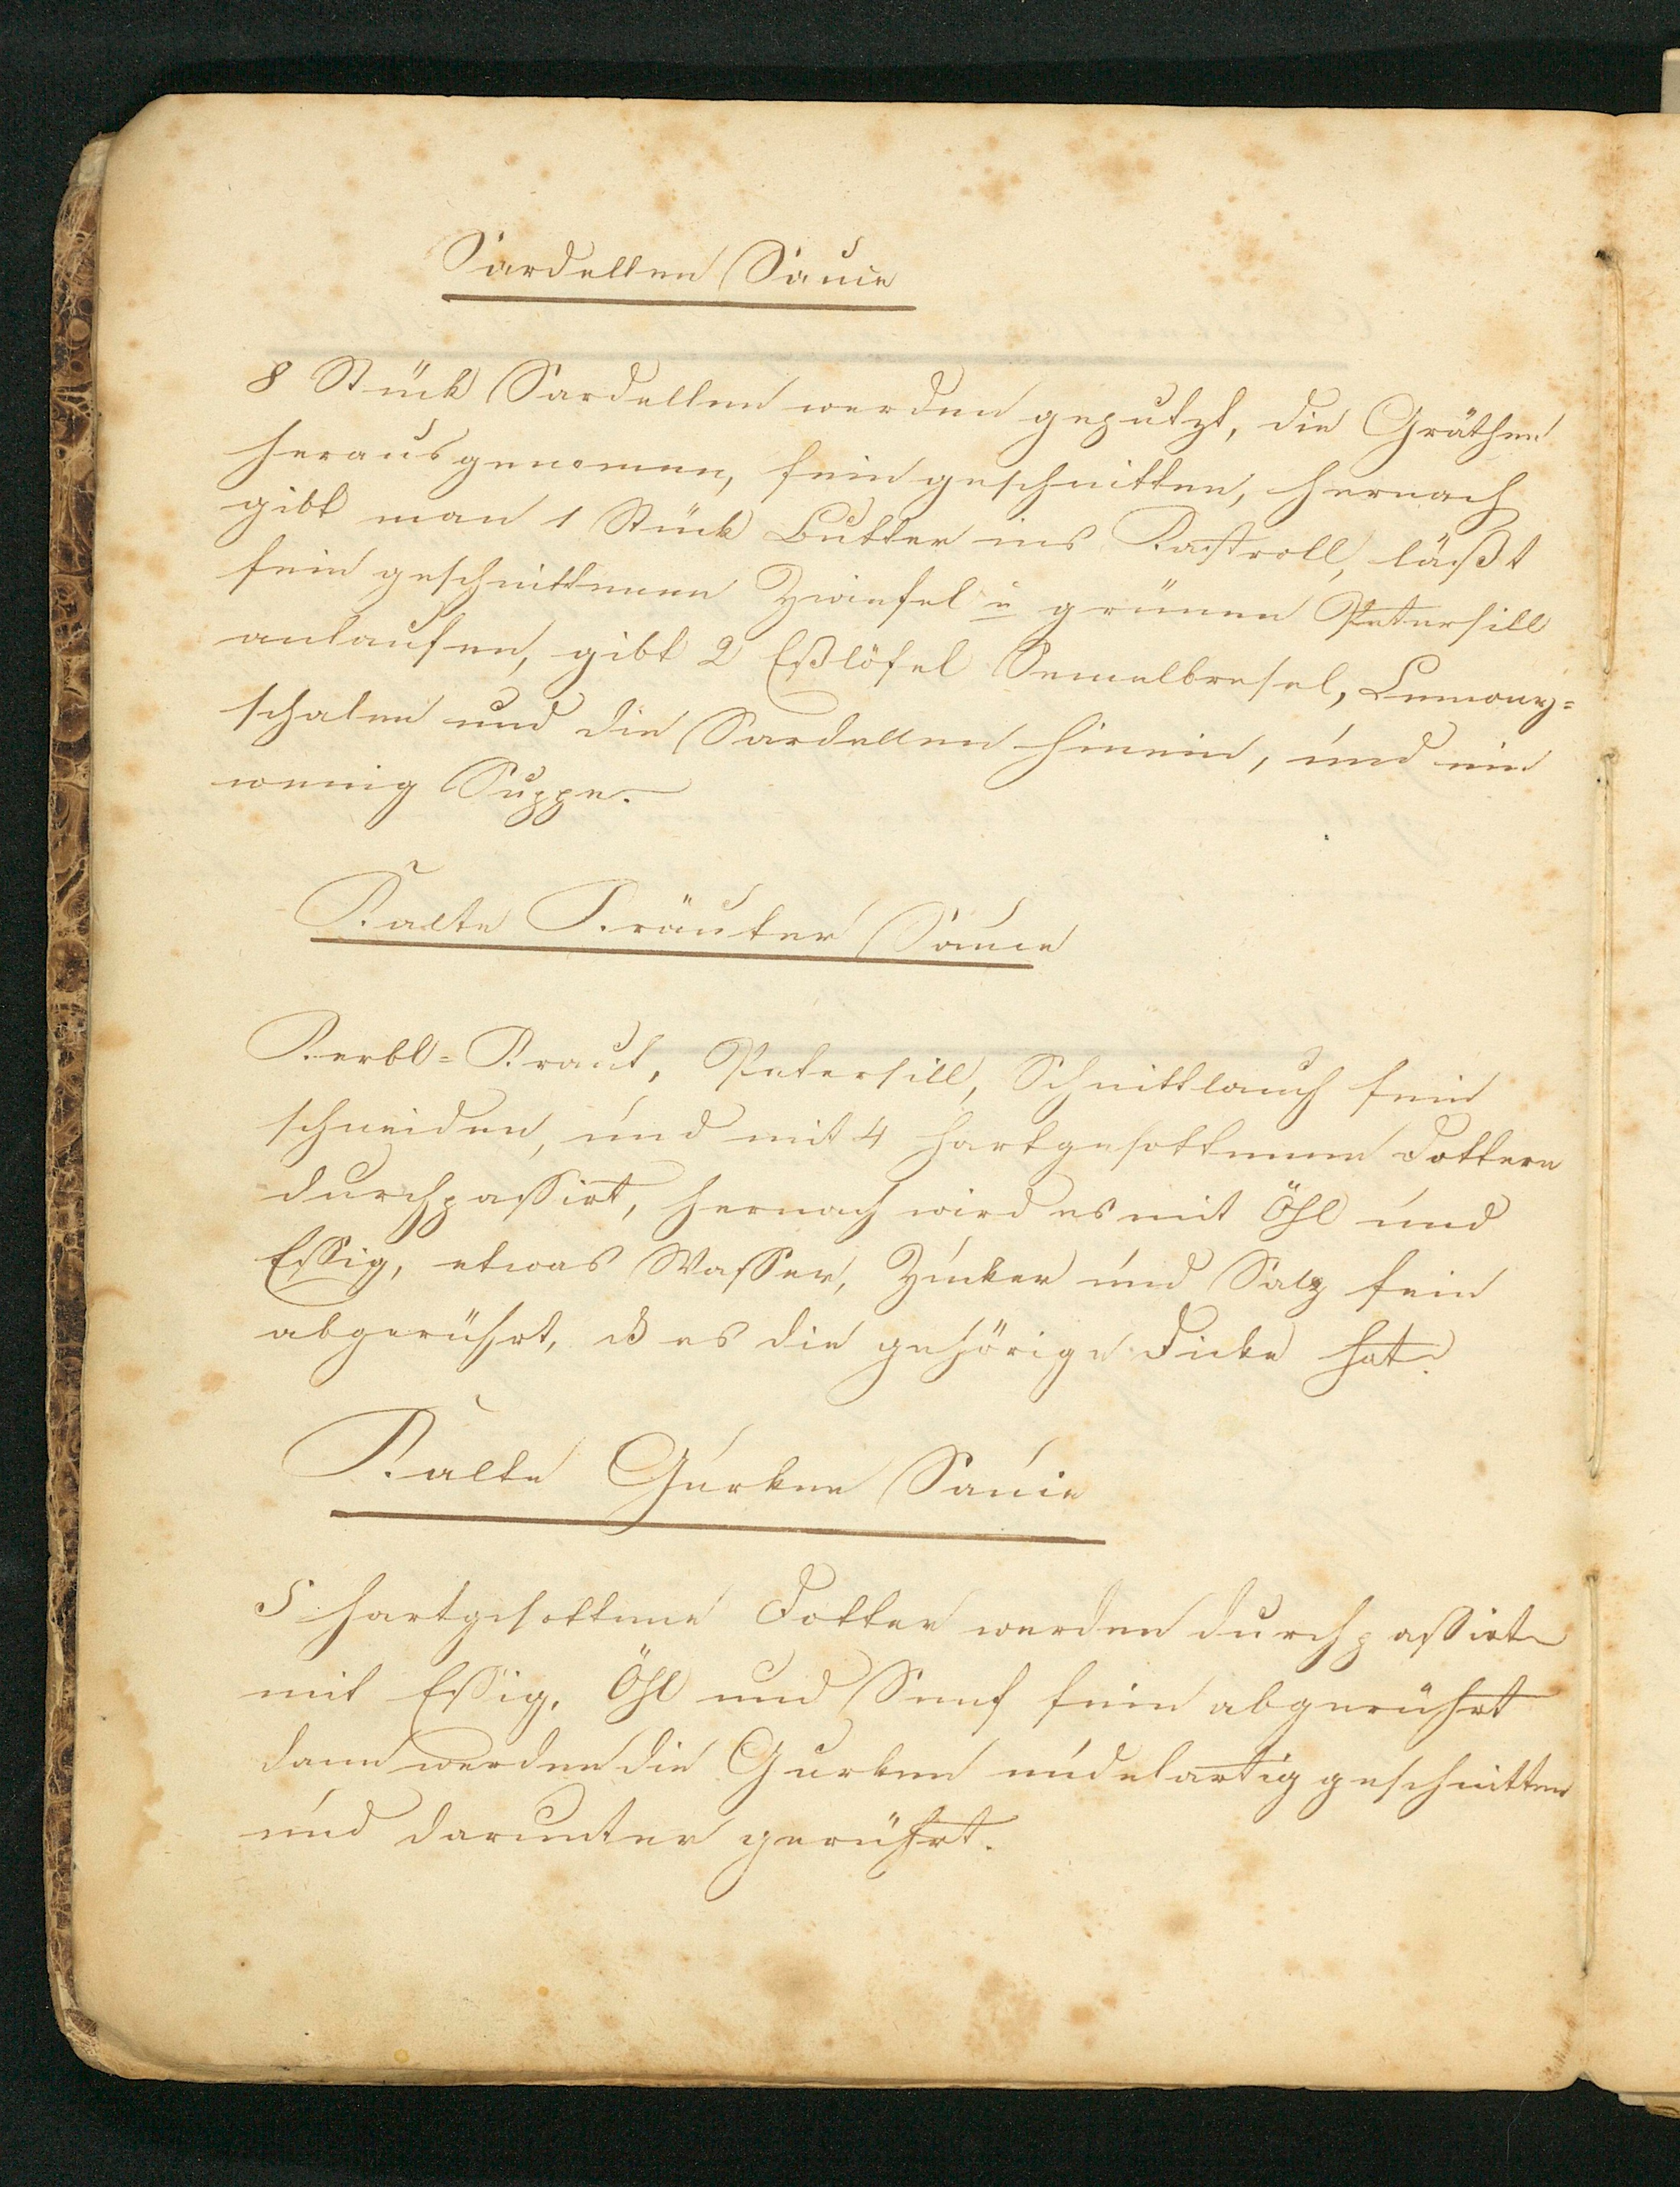 Sardellen Sauce
8 Stück Sardellen werden geputzt, die Gräthen
herausgenomen, fein geschnitten, hernach
gibt man 1 Stück Butter ins Kastroll, läßt
fein geschnittenen Zwiefel u grünen Petersill
anlaufen, gibt 2 Eßlöfel Semelbresel, Lemony=
schalen und die Sardellen hinein, und ein
wenig Suppe.
Kalte Kräuter Sauce
Kerbl=Kraut, Petersill, Schnittlauch fein
schneiden, und mit 4 hartgesottenen Dottern
durchpassirt, hernach wird es mit Öhl und
Essig, etwas Wasser, Zucker und Salz fein
abgerührt, es die gehörige Dicke hat.
Kalte Gurken Sauce
5 hartgesottene Dotter werden durchpassirt
mit Essig, Öhl und Senf fein abgerührt
dann werden die Gurken nudelartig geschnitten
und darunter gerührt.